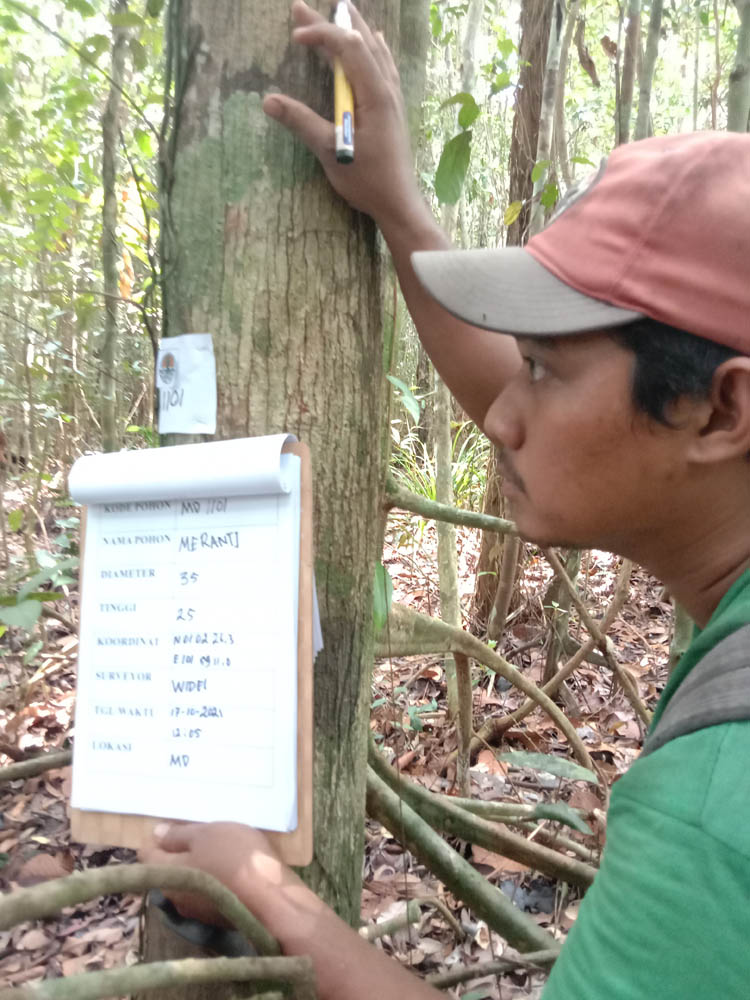 1101
KODE POHON MD 1101
NAMA POHON MERANTI
DIAMETER 35
TINGGI 25
KOORDINAT N 01 02 26.3
E 101 09 11.0
SURVEYOR WIDEI
TGL WAKTU 17-10-2021
12:05
LOKASI MD